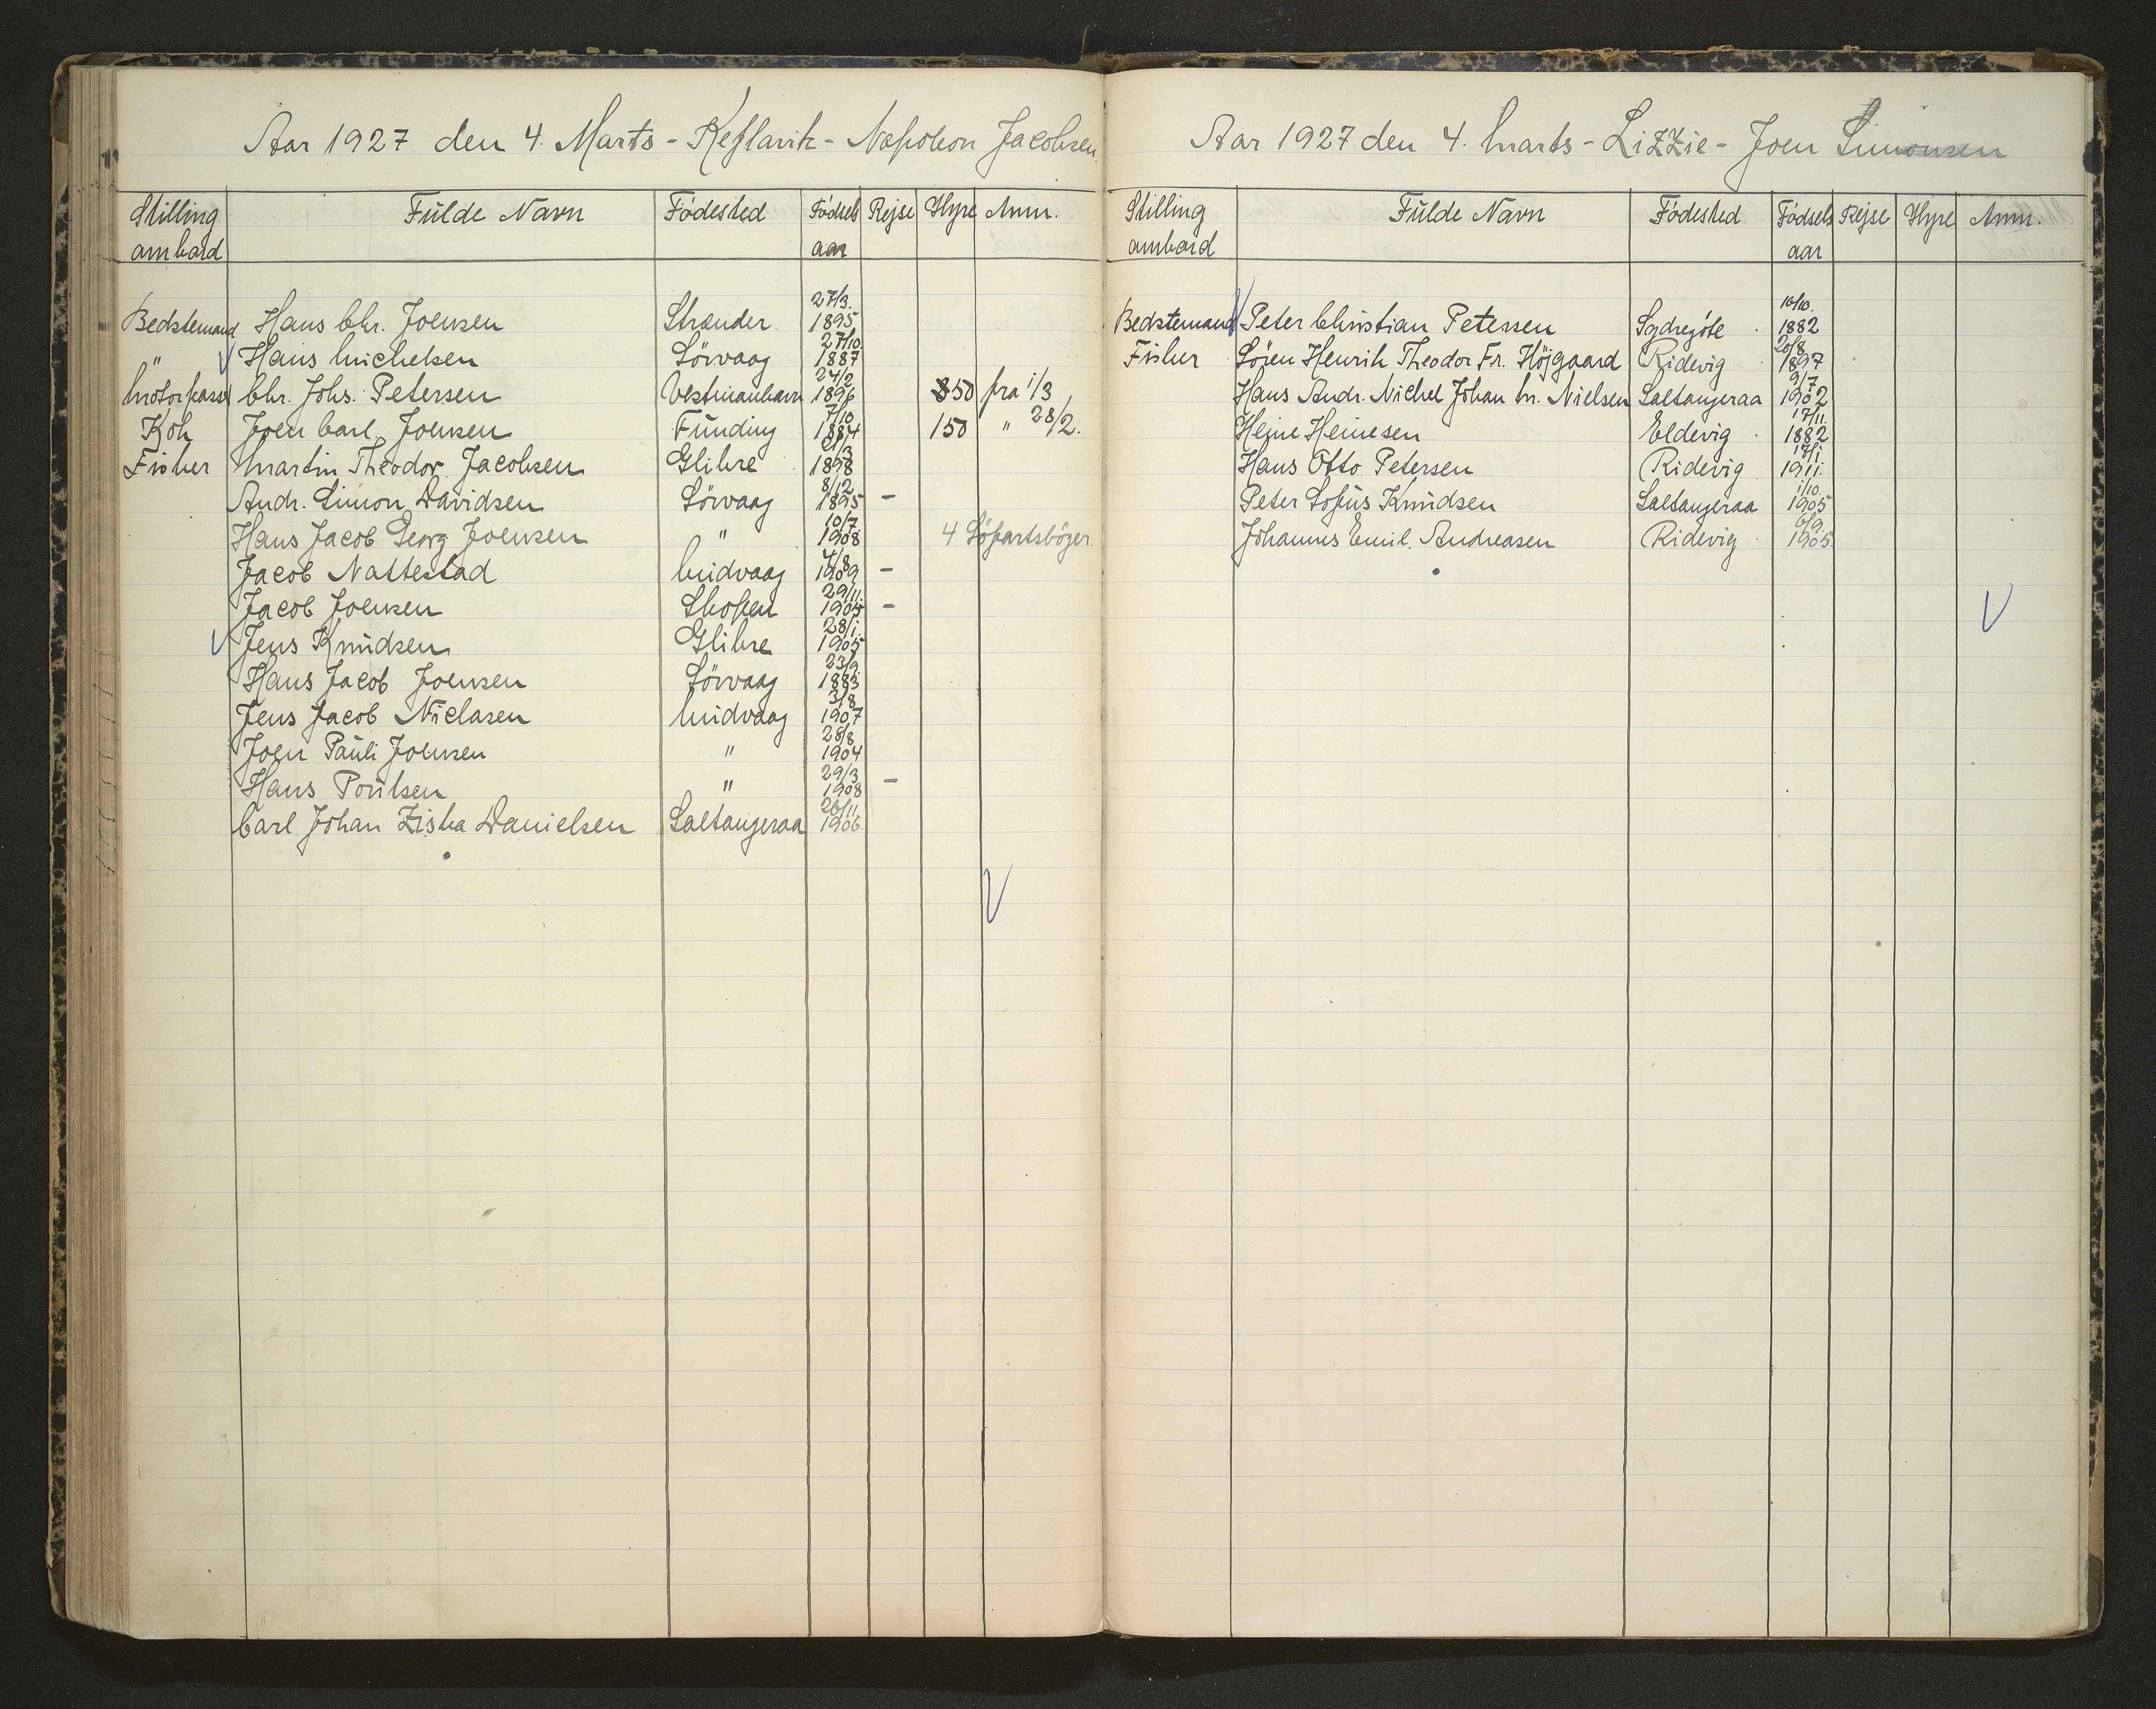 Aar 1927 den 4. Marts - Keflavik - Napoleon Jacobsen
Stilling ombord Fulde Navn Födested Födsels aar Rejse Hyre Anm.
Bedstemand Hans Chr. Joensen Strænder 27/3. 1895
" Hans Michelsen Sörvaag 27/10 1887
Motorpasser Chr. Johs. Petersen Vestmanhavn 24/2 1896 350 fra 1/3
Kok Joen Carl Joensen Funding 7/10 1884 150 " 28/2.
Fisker Martin Theodor Jacobsen Glibre 1898
Andr. Simon Davidsen Sörvaag 8/12 1895 -
Hans Jacob Georg Joensen " 10/7 1908 4 Söfartsböger
Jacob Nattestad Midvaag 4/8 1909 -
Jacob Joensen Skopen 29/11 1905 -
Jens Knudsen Glibre 28/1 1905
Hans Jacob Joensen Sörvaag 23/9 1883
Jens Jacob Niclasen Midvaag 3/8 1907
Joen Pauli Joensen " 28/8 1904
Hans Poulsen " 29/3 1908 -
Carl Johan Ziska Danielsen Saltangeraa 26/11. 1906
Aar 1927 den 4. Marts - Lizzie - Joen Simonsen
Stilling ombord Fulde Navn Födested Födsels aar Rejse Hyre Anm.
Bedstemand Peter Christian Petersen Sydregöte 10/10. 1882
Fisker Sören Henrik Theodor Fr. Höjgaard Ridevig 20/8 1897
Hans Andr. Nichel Johan M. Nielsen Saltangeraa 9/7 1902
Heine Heinesen Eldevig 17/11. 1882
Hans Otto Petersen Ridevig 17/1 1911.
Peter Sofus Knudsen Saltangeraa 1/10. 1905
Johannes Emil Andreasen Ridevig 6/9. 1905